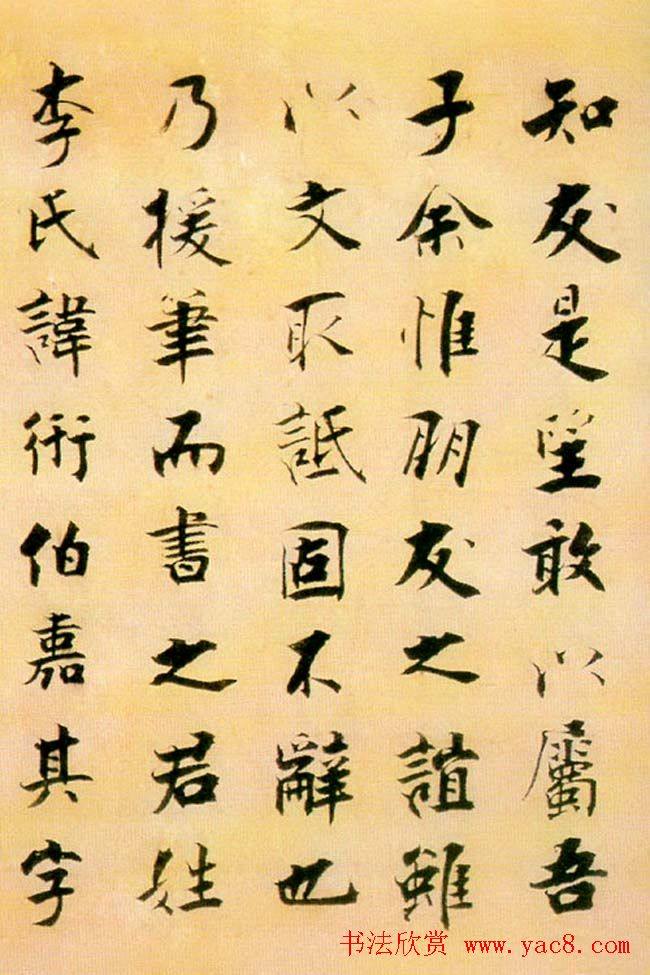 知友是望敢以屬吾
子余惟朋友之誼雖
以文取詆固不辭也
乃援筆而書之君姓
李氏諱術伯嘉其字
书法欣赏 www.yac8.com